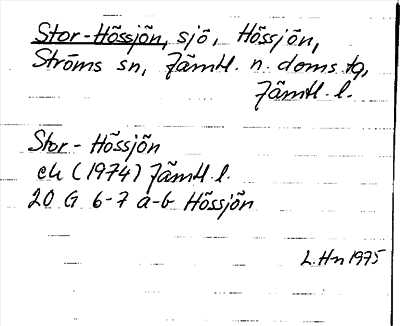 Stor-Hössjön, sjö, Hössjön,
Ströms sn, Jämtl. n. doms. tg,
Jämtl. l.
Stor-Hössjön
ek (1974) Jämtl. l.
20 G 6-7 a-b Hössjön
L. Hn 1975